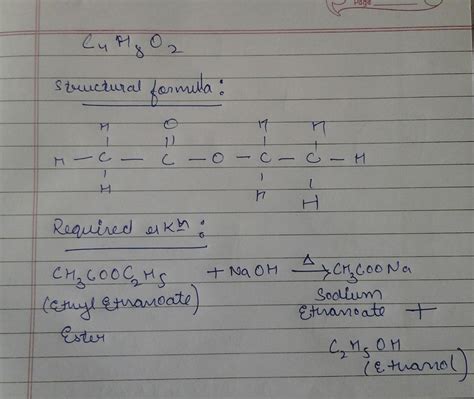 Page
C4H8O2
Structural formula:
H O H H
H – C – C – O – C – C – H
H H H
Required rxn:
CH3COOC2H5 + NaOH Δ→ CH3COONa
(Ethyl Ethanoate) Sodium
Ethanoate +
Ester
C2H5OH
(Ethanol)